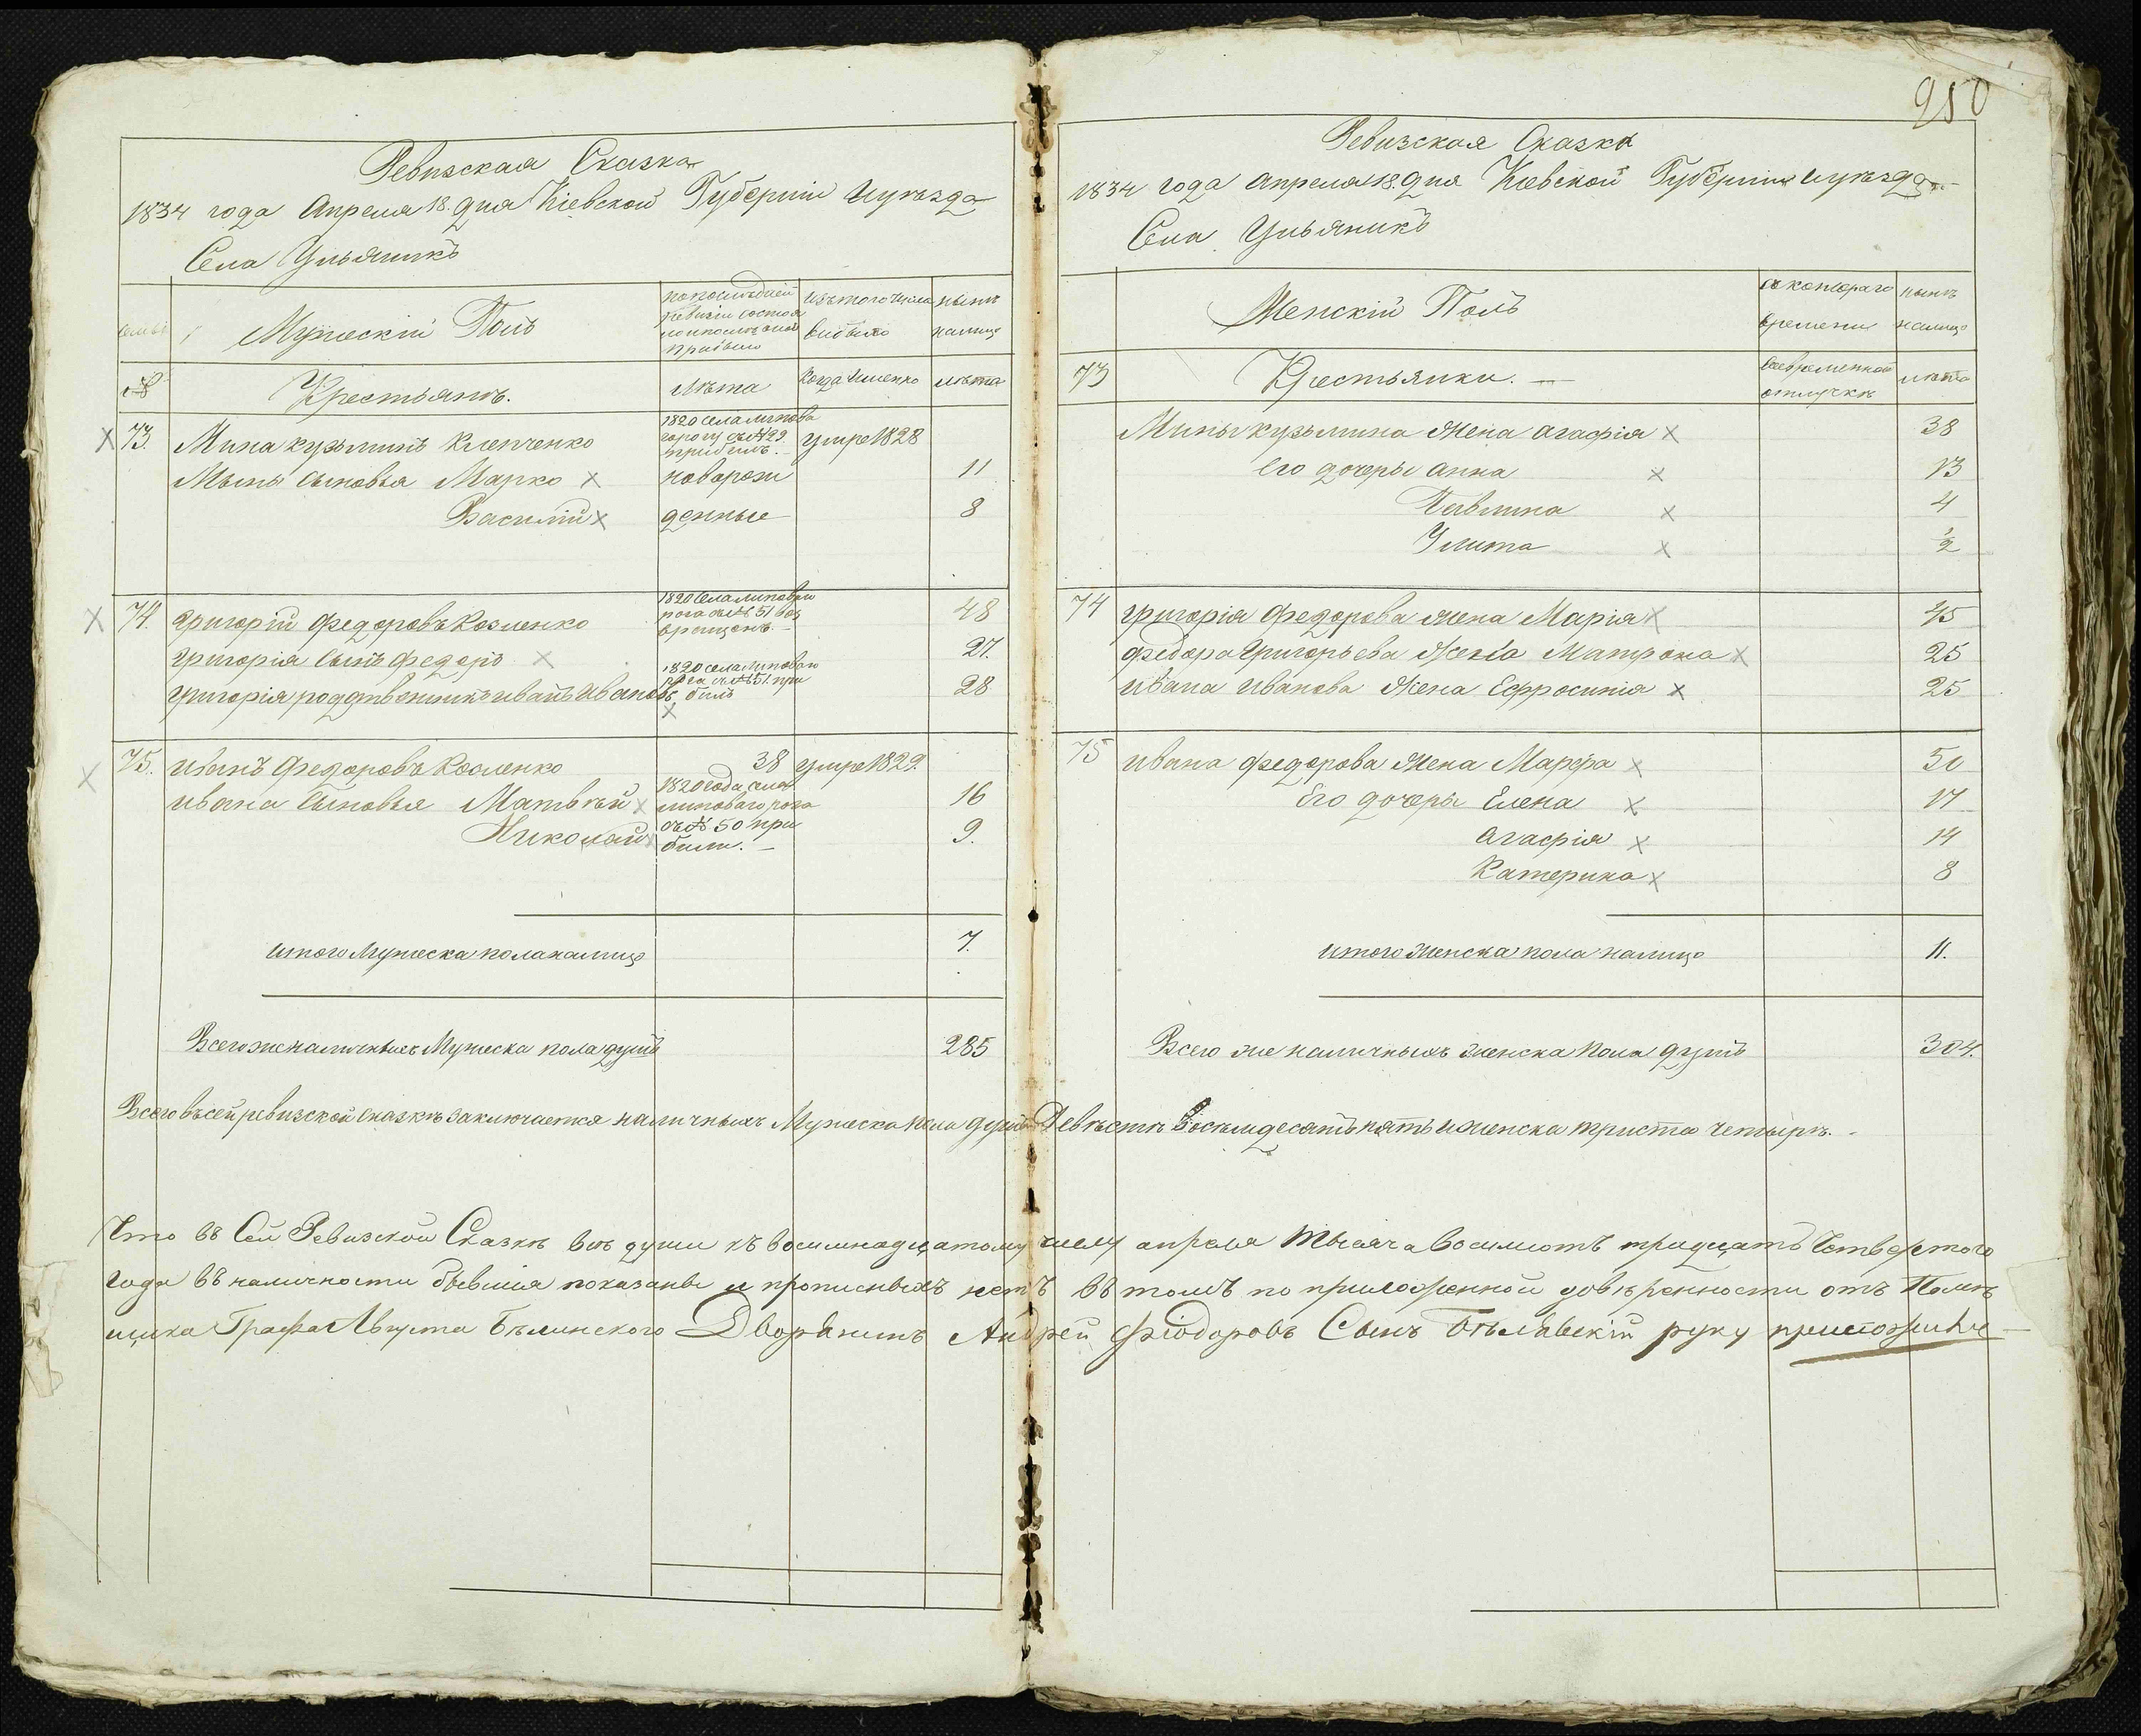 250
Ревизская Сказка
1834 года Апреля 18. дня Кіевской Губерніи и уѣзда
Села Ульяникъ
Мужескій Полъ
по последней
ревизіи состоя
ло и после оной
прибыло
изъ того числа
выбыло
нынѣ
налицо
№
Крестьянъ.
лѣта
когда именно
лѣта
73. Мина кузьминъ Клепченко
1820 Села липова
го рогу съ №29.
прибылъ.
умре 1828
Мины Сыновья Марко новорож 11
Василій денные 8
74. Григорій Федоровъ Козленко
1820 Села липоваго
рога съ № 51 воз
вращенъ.
48
Григорія Сынъ Федоръ 27.
Григорія родственникъ иванъ Ивановъ
1820 села липоваго
рога съ № 51. при
былъ
28
75. иванъ Федоровъ Козленко 38 умре 1829.
ивана Сыновья Матвѣй 16
Николай 9.
1820 года села
липоваго рога
съ № 50 при
были.
итого Мужеска пола налицо 7.
Всего же наличныхъ Мужеска пола душъ 285
Ревизская Сказка
1834 года апреля 18. дня Кіевской Губерніи и уѣзда
Села Ульяникъ
Женскій Полъ
съ котораго
времени
нынѣ
налицо
73 Крестьянки.
во временной
отлучкѣ
лѣта
Мины кузьмина Жена агафія 38
Его дочеры анна 13
Павлина 4
Улита 1/2
74 григорія Федорова жена Марія 45
федора Григорьева Жена Матрона 25
ивана иванова Жена Ефросинія 25
75 ивана федорова Жена Марфа 50
Его дочеры Елена 17
агафія 14
Катерина 8
итого женска пола налицо 11.
Всего же наличныхъ женска пола душъ 304.
Всего въ сей ревизской сказкѣ заключается наличныхъ Мужеска пола душъ Двѣсти Восемдесятъ пять и женска триста четыре.
Что въ Сей Ревизской Сказкѣ всѣ души къ восимнадцатому числу апреля тысяча восимсотъ тридцать Четвертого
года въ наличности бывшія показаны и прописныхъ нетъ въ томъ по приложенной довѣренности отъ Помѣ
щика Графа Августа Бѣлинского Дворянинъ Андрей Фіодоровъ Сынъ Бѣлявскій руку приложилъ